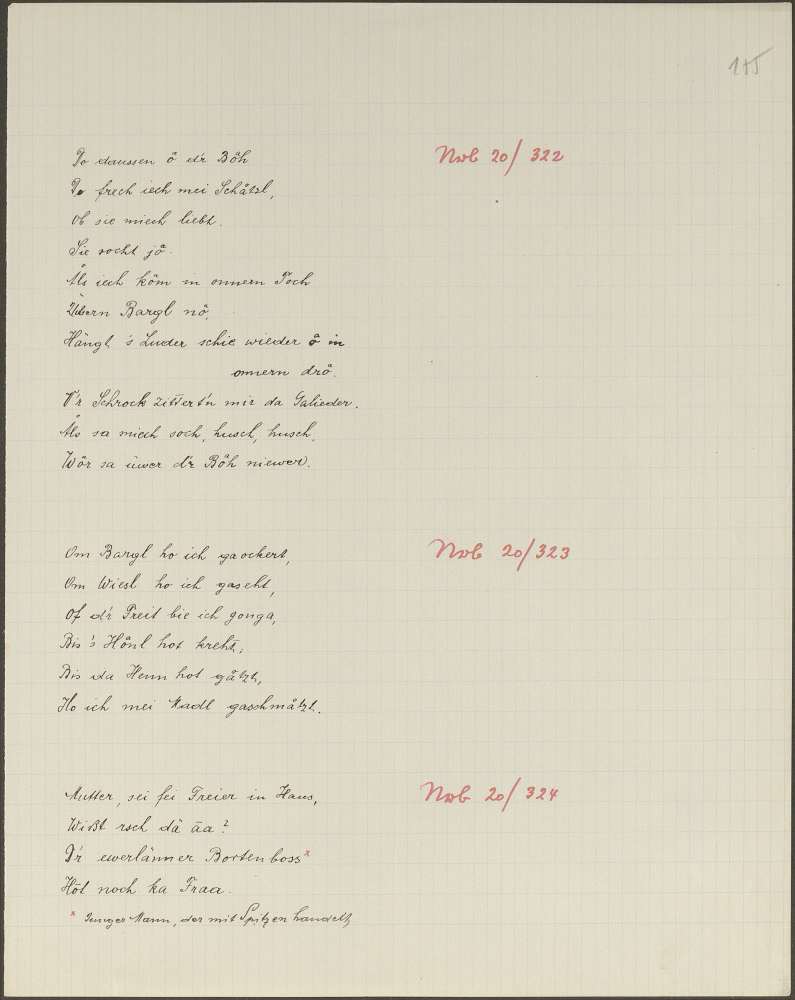 115
Do daussen å dr Båh
Nob 20/322
Do frech iech mei Schåtzl,
Ob sie miech liebt.
Sie socht jå.
Åls iech köm in onnern Toch
Übern Bargl nå,
Hängt 's Luder schie wieder å in
onnern drå.
V'r Schrock zittert'n mir da Galieder.
Åls sa miech soch, husch, husch,
Wår sa üwer dr Båh niewer.
Om Bargl ho ich gaockert,
Nob 20/323
Om Wiesl ho ich gaseht,
Of d'r Freit bie ich gonga,
Bis 's Hånl hot kreht,
Bis da Henn hot gåtzt,
Ho ich mei Madl gaschmåtzt.
Mutter, sei fei Freier in Haus,
Nob 20/324
Wißt rsch dä äa?
D'r ewerlänner Bortenboss x
Hot noch ka Fraa.
x Junger Mann, der mit Spitzen handelt